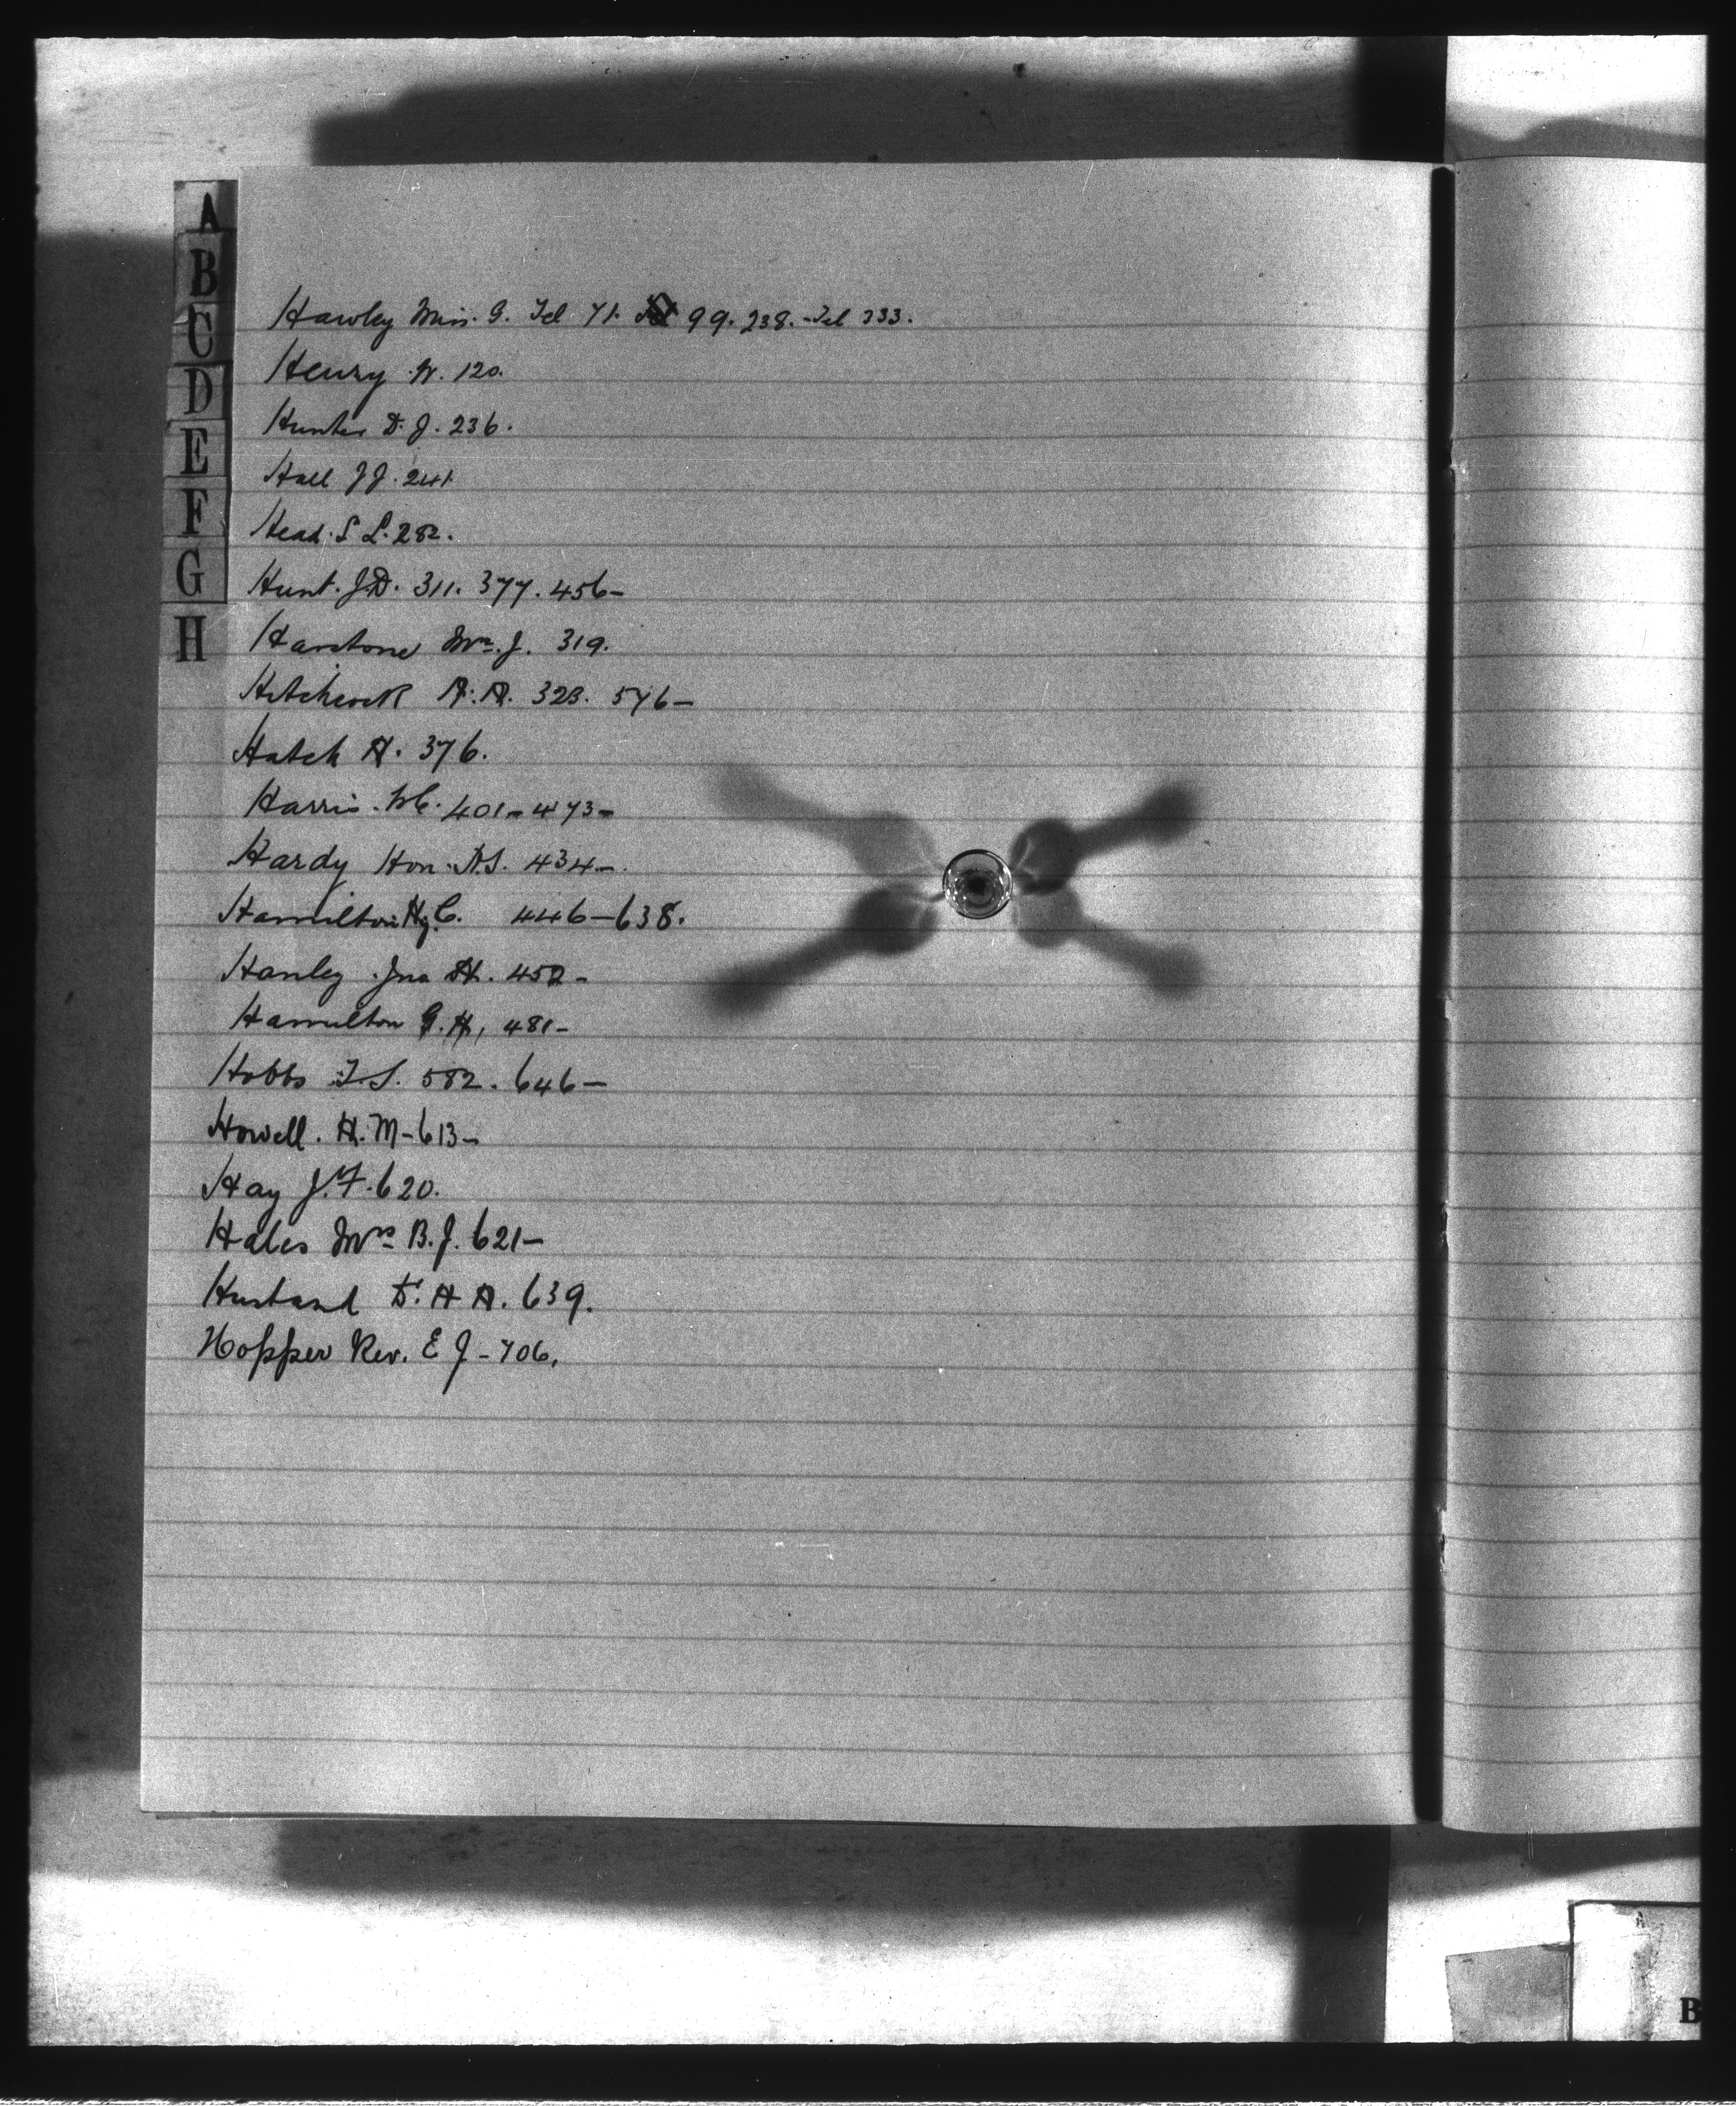 A
B
C
D
E
F
G
H
Hawley Miss. G. Tel 71. 99. 238. - Tel 333.
Henry W. 120.
Hunter D. J. 236.
Hall J J. 241
Head. S L. 282.
Hunt. J.D. 311. 377. 456-
Harstone Mrs. J. 319.
Hitchcock A. A. 323. 576-
Hatch H. 376.
Harris. 401- 473-
Hardy Hon. A.S. 434-
Hamilton Hy. C. 446-638.
Hanley Jno H. 452-
Hamilton G. H, 481-
Hobbs T.S. 582. 646-
Howell. H. M-613-
Hay J. F. 620.
Hales Mrs B. J. 621-
Husband D. H A. 639.
Hopper Rev. E J - 706.
B